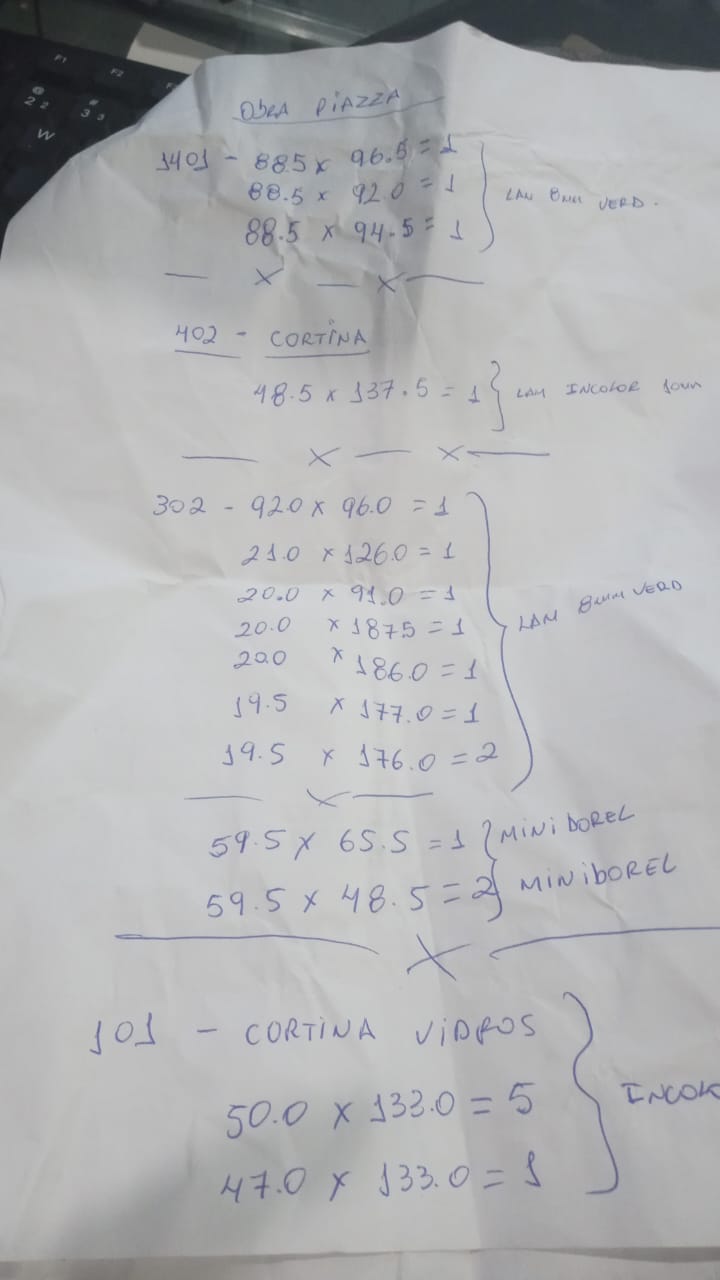 OBRA PIAZZA
1401 - 88.5 x 96.5 = 1
88.5 x 92.0 = 1
88.5 x 94.5 = 1
LAM 8mm VERD.
402 - CORTINA
48.5 x 137.5 = 1 } LAM INCOLOR 10mm
302 - 92.0 x 96.0 = 1
21.0 x 126.0 = 1
20.0 x 91.0 = 1
20.0 x 187.5 = 1
20.0 x 186.0 = 1
19.5 x 177.0 = 1
19.5 x 176.0 = 2
LAM 8mm VERD
59.5 x 65.5 = 1 } MINIBOREL
59.5 x 48.5 = 2 } MINIBOREL
101 - CORTINA VIDROS
50.0 x 133.0 = 5
47.0 x 133.0 = 1
F1
F2
W